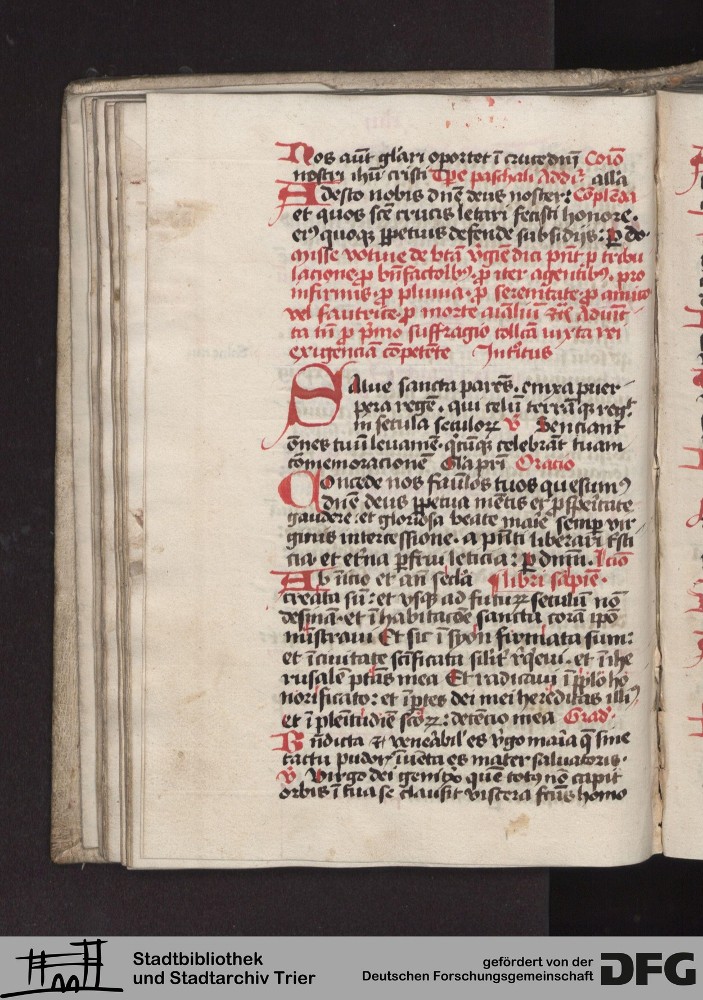 Nos aut̄ gl̄ari oportet ī cruce dn̄i Co͞io
nostri ihū cristi Tp̄e paschali Addiᷣ alla
Adesto nobis dn̄e deus noster: Cōpl̄eda
et quos sc̄e crucis letari fecisti honore.
eiꝰ quoqꝫ ꝑpetuis defende subsidijs: ꝑ do
misse votiue de bt̄a v̓gīe dici pn̄t ꝓ tribu
lacione ꝓ bn̄factoībꝰ ꝓ iter agentibꝰ. pro
infirmis. ꝓ pluuia. ꝓ serenitate ꝓ amico
vel fautrice. ꝓ morte
ta tn̄ ꝓ p̄mo suffragio coll̄ca iuxta rei
exigencia cōpetēte Introitus
Salue sancta parēs. enixa puer
pera regē. qui celū terrāqꝫ regit
in secula seculoꝝ v̓ Senciant
ōnes tuū leuamē. q̄cūqꝫ celebrāt tuam
cōmemoracionē Gl̄a pr̄i Oracio
Concede nos famlos tuos quesumꝰ
dn̄e deus ꝑpetua mētis et ꝓsperitate
gaudere: et gloriosa beate marie semꝑ vir
ginis intercessione. a pn̄ti liberari tristi
cia. et et̄na ꝑfrui leticia: ꝑ dn̄m. Lc̄io
Ab īicio et an̄ sec̄la libri sapiē.
creata sū: et vsqꝫ ad futuꝝ seculū nō
desinā. et ī habitacōe sancta corā ip̄o
ministraui Et sic ī syon firmata sum:
et ī ciuitate sc̄ificata silīt r̄qeui. et ī ihe
rusalē ptās mea Et radicaui ī ppl̄o ho
norificato: et ī ꝑtes dei mei hereditas illiꝰ
et ī plēitudiē sc̄oꝝ: detencio mea Grad᷒
Bn̄dicta et venerabil̓ es v̓go maria q̄ sine
tactu pudoris īuēta es mater saluatoris.
v̓ Virgo dei genitͥx quē totꝰ nō capit
orbis ī tua se clausit viscera fc̄us homo
Stadtbibliothek
und Stadtarchiv Trier
gefördert von der
Deutschen Forschungsgemeinschaft
DFG